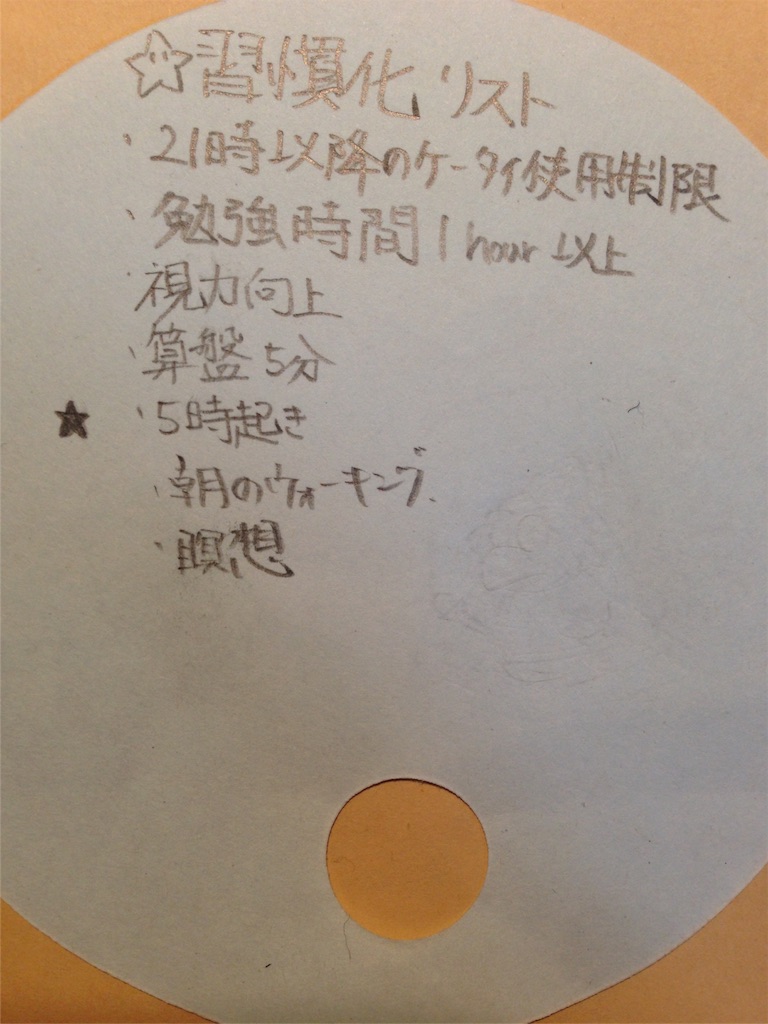 ☆習慣化リスト
・21時以降のケータイ使用制限
・勉強時間1hour以上
・視力向上
・算盤5分
★・5時起き
・朝のウォーキング.
・瞑想